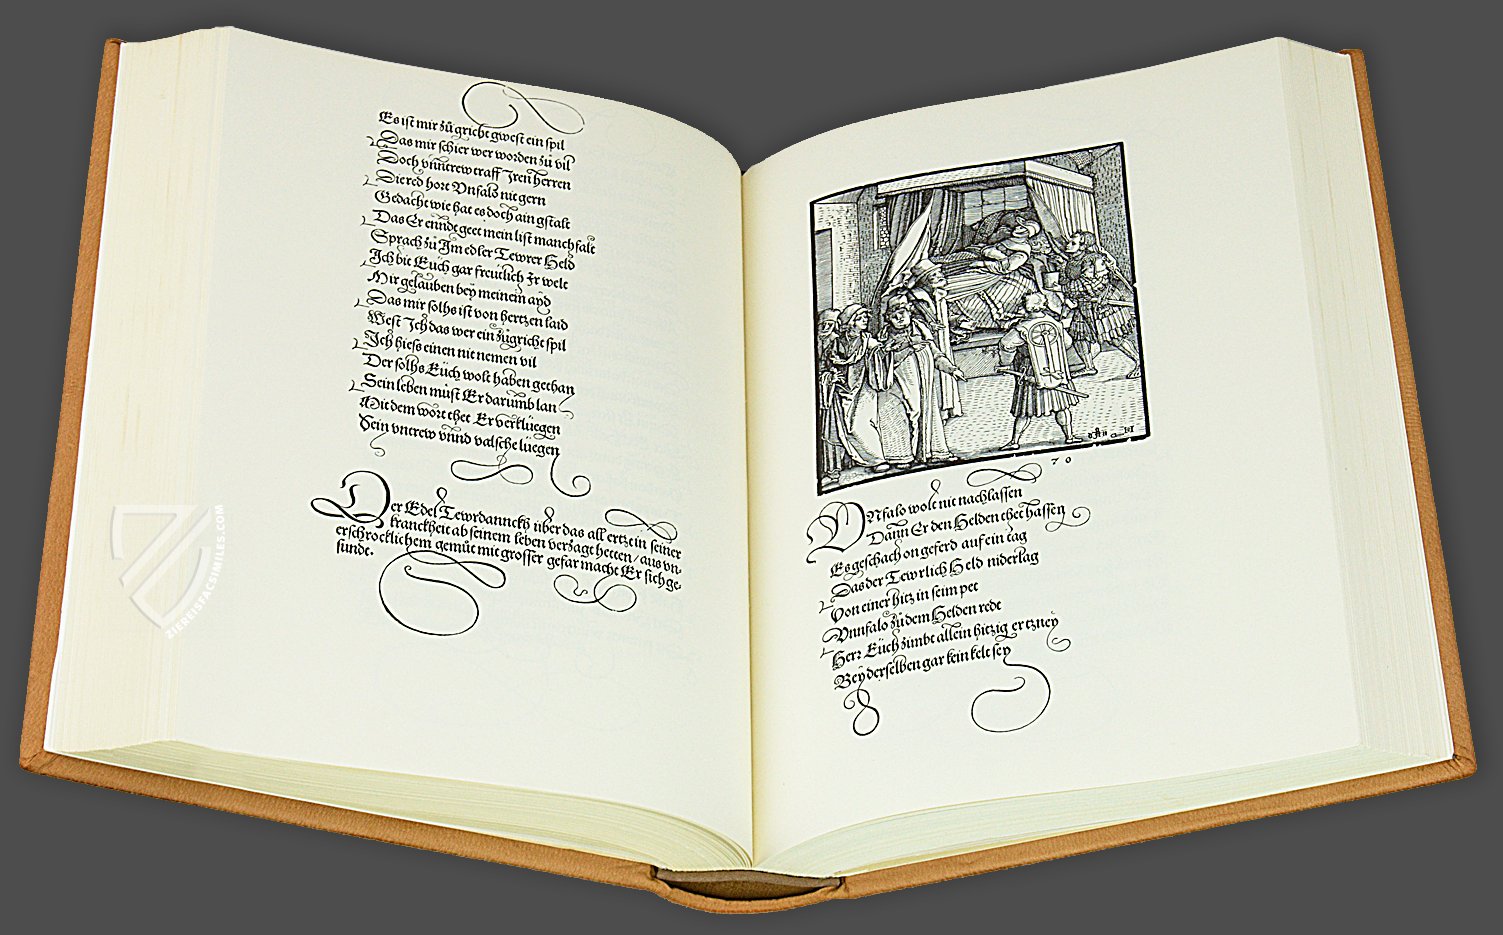 Es ist mir zůgricht gwest ein spil
Das mir schier wer worden zů vil
Doch vnntrew traff Jren herren
Die red hort Vnfalo nit gern
Gedacht wie hat es doch ain gstalt
Das Er ennde geet mein list manchfalt
Sprach zů Jm edler Tewrer Held
Ich bit Eůch gar freůtlich Jr welt
Mir gelauben bey meinem ayd
Das mir solhs ist von hertzen laid
West Jch das wer ein zůgricht spil
Ich hiess einen nit nemen vil
Der solhs Eůch wolt haben gethan
Sein leben můst Er darumb lan
Mit dem wort thet Er verklůegen
Sein vntrew vnnd valsche lůegen
Der Edel Tewrdannckh ůber das all ertzt in seiner
kranckheit ab seinem leben verzagt hetten / aus vn-
erschrocklichem gemůt mit grosser gefar macht Er sich ge-
sunde.
70
VNfalo wolt nit nachlassen
Dann Er den Helden thet hassen
Es geschach on geferd auf ein tag
Das der Tewrlich Held niderlag
Von einer hitz in seim pet
Vnnfalo zů dem Helden redt
Herr Eůch zimbt allein hitzig ertzney
Bey derselben gar kein kelt sey
ZIEREISFACSIMILES.COM